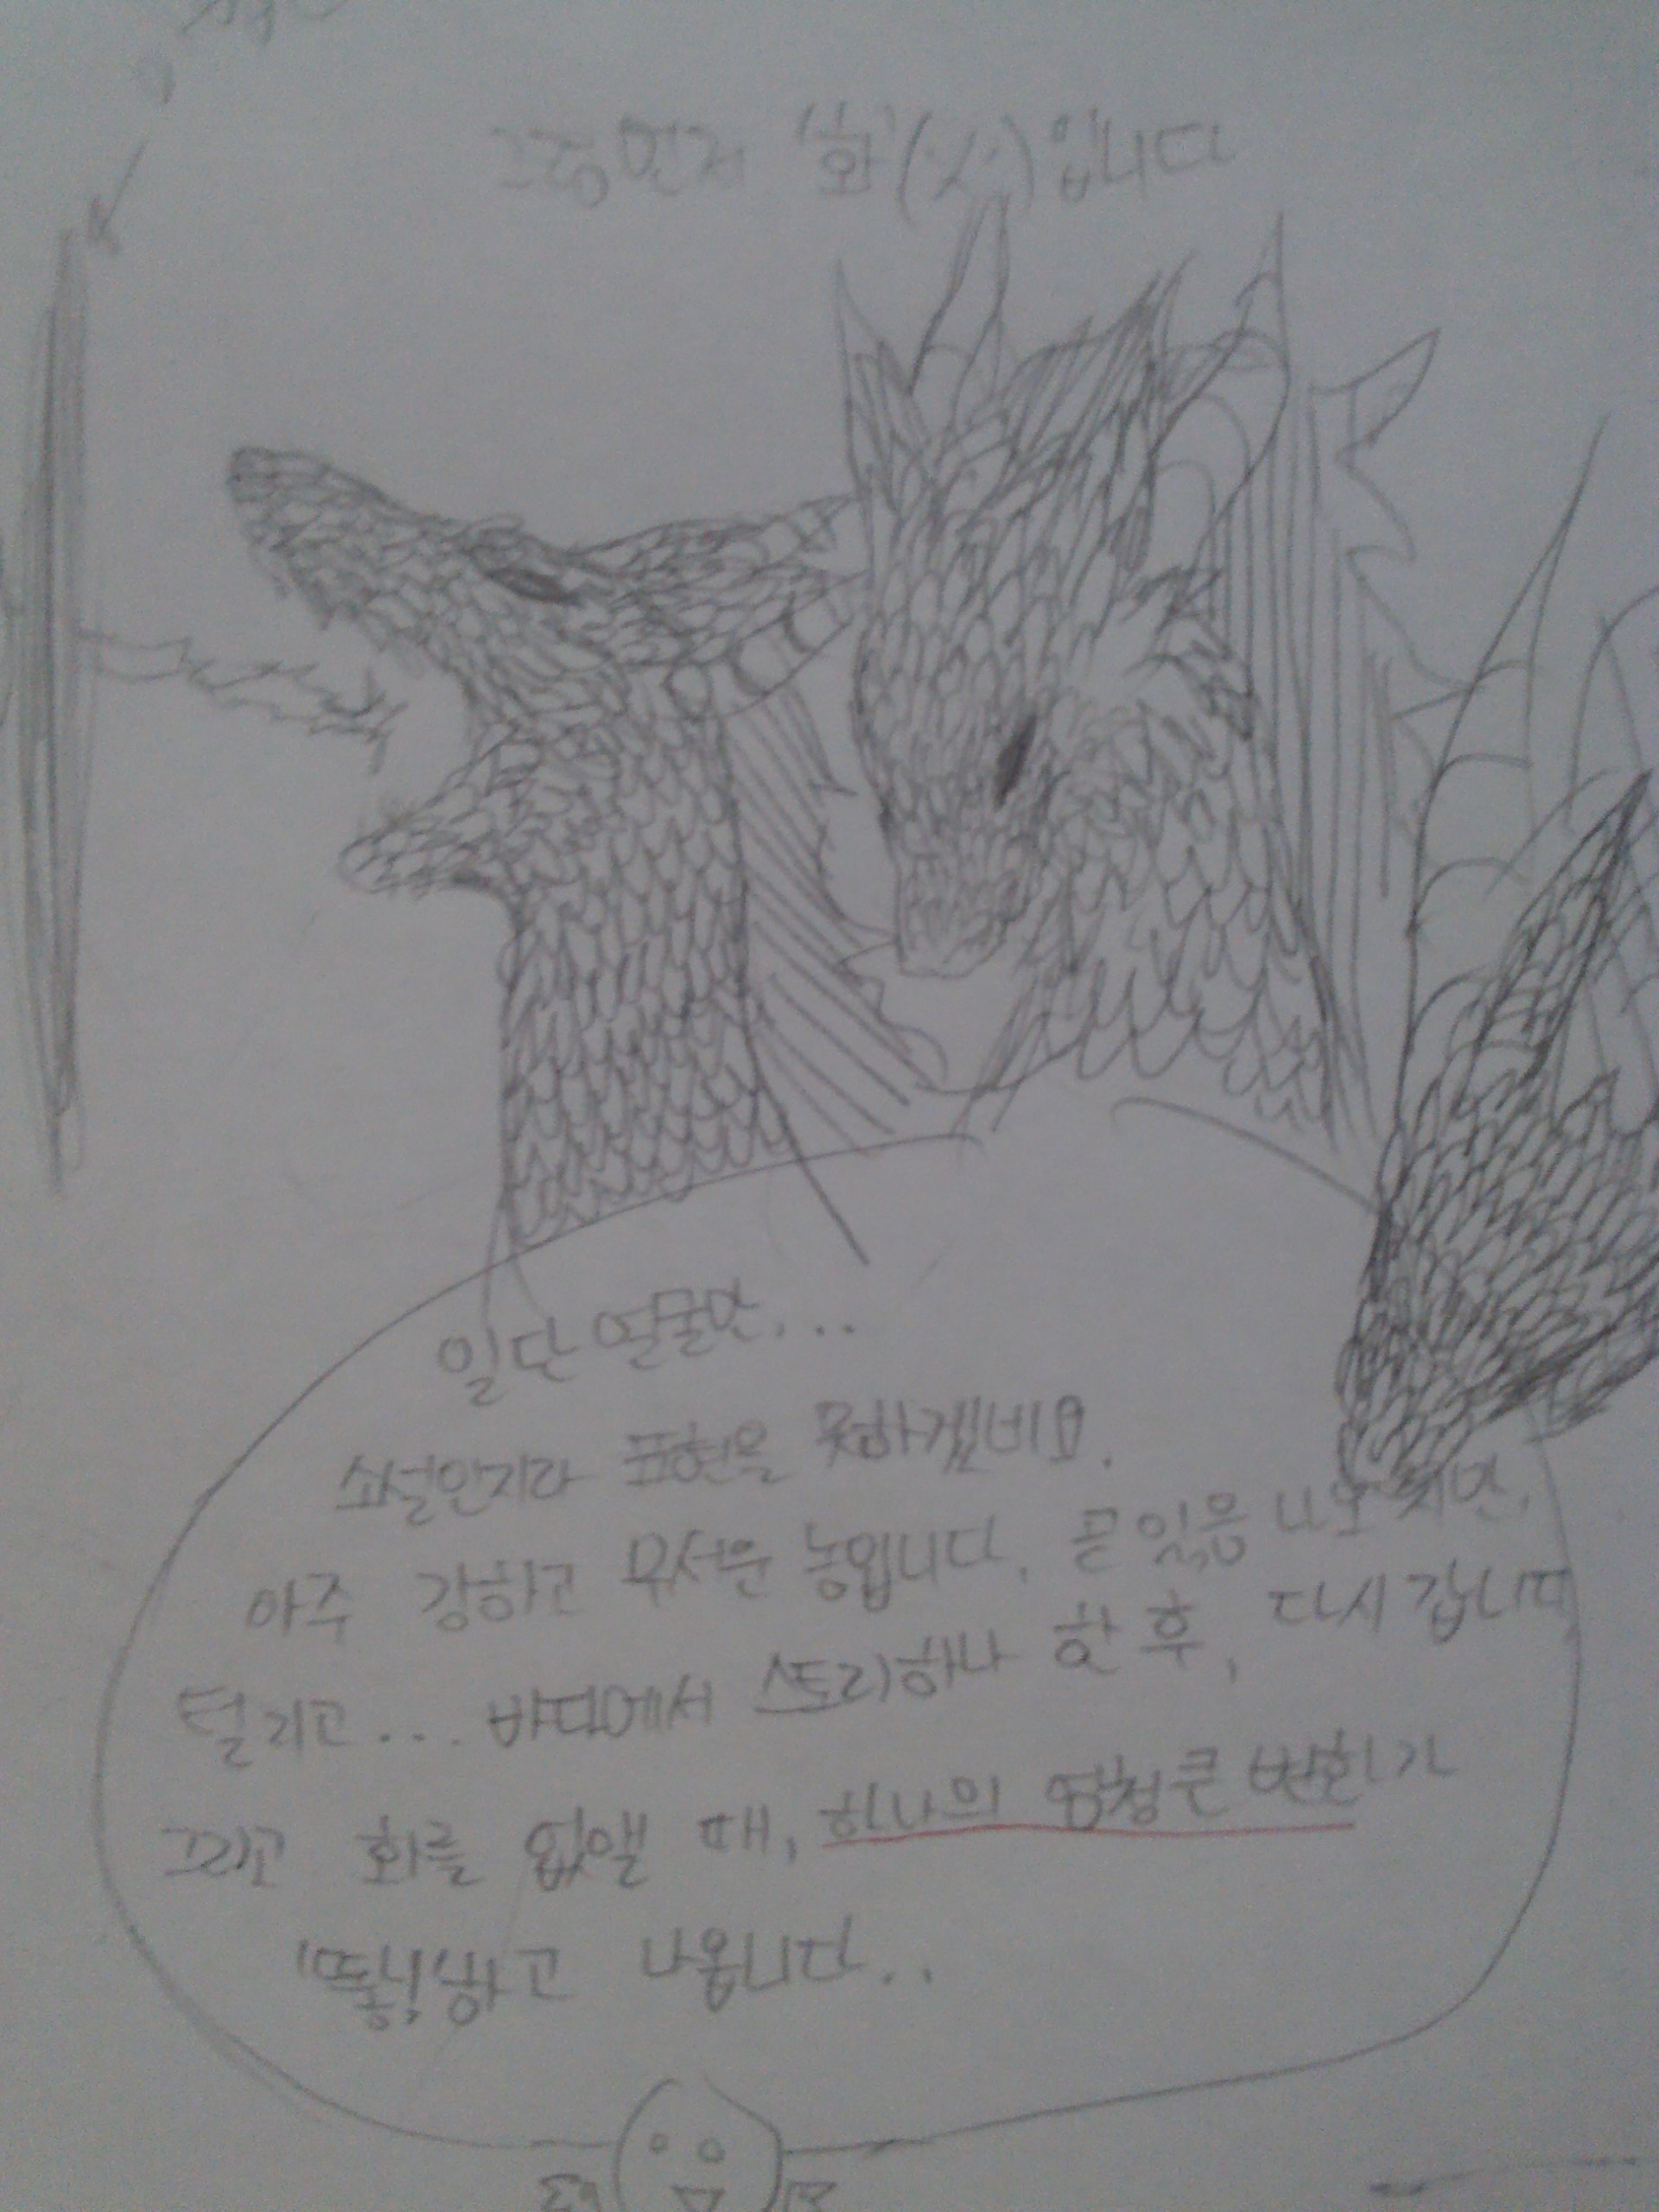 그중 먼저 '화'(火)입니다
일단 얼굴만...
소설인지라 표현을 못하겠네요.
아주 강하고 무서운 놈입니다. 곧 있음 나오지만,
털리고... 바다에서 스토리하나 한 후, 다시 갑니다
그리고 화를 없앨 때, 하나의 엄청 큰 변화가
'뚫닝!'하고 나옵니다..